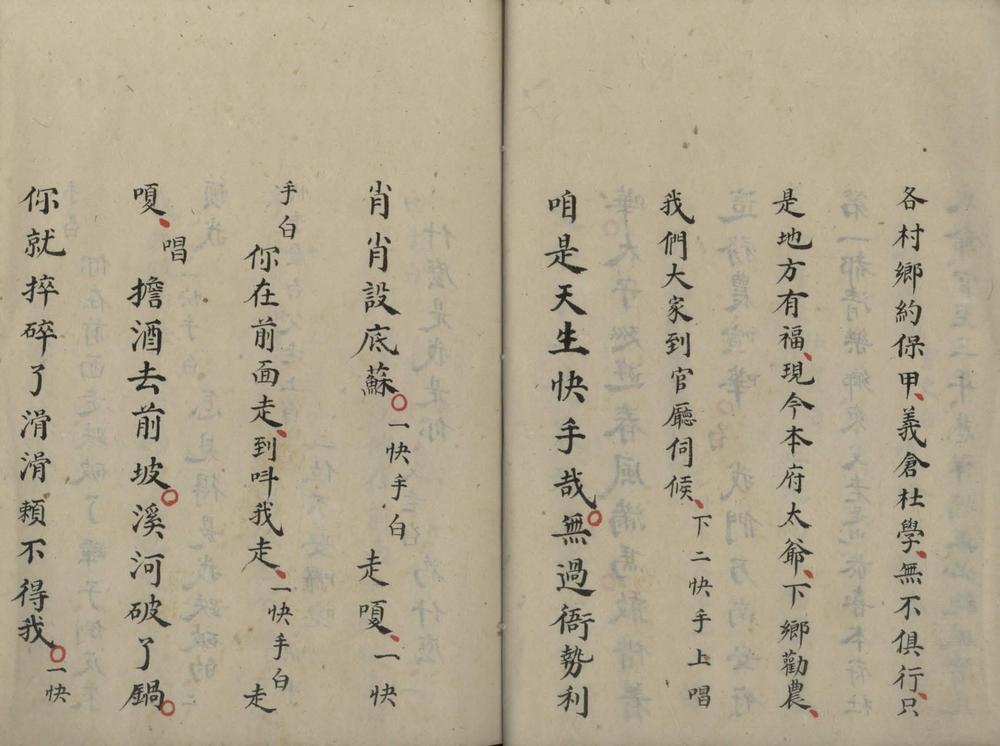 各村鄉約保甲、義倉社學、無不俱行、只
是地方有福、現今本府太爺、下鄉勸農、
我們大家到官廳伺候、下二快手上唱
咱是天生快手哉。無過衙勢利
肖肖設底蘇。一快手白走嗄、一快
手白你在前面走、到呌我走、一快手白走
嗄、唱擔酒去前坡。溪河破了鍋。
你就摔碎了滑滑賴不得我。一快